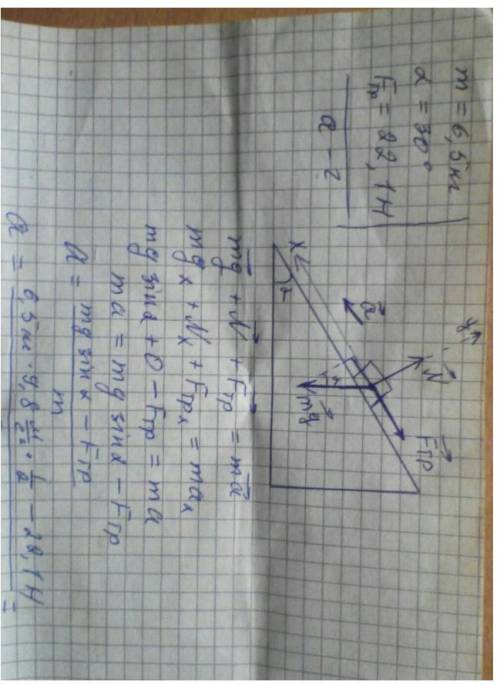 m = 6,5 кг
α = 30°
Fтр = 22,1 Н
a - ?
y
N
Fтр
a
mg
x
α
mg + N + Fтр = ma
mgx + Nx + Fтрx = max
mg sinα + 0 - Fтр = ma
ma = mg sinα - Fтр
a = mg sinα - Fтр
m
a = 6,5 кг · 9,8 · 1/2 - 22,1 Н =